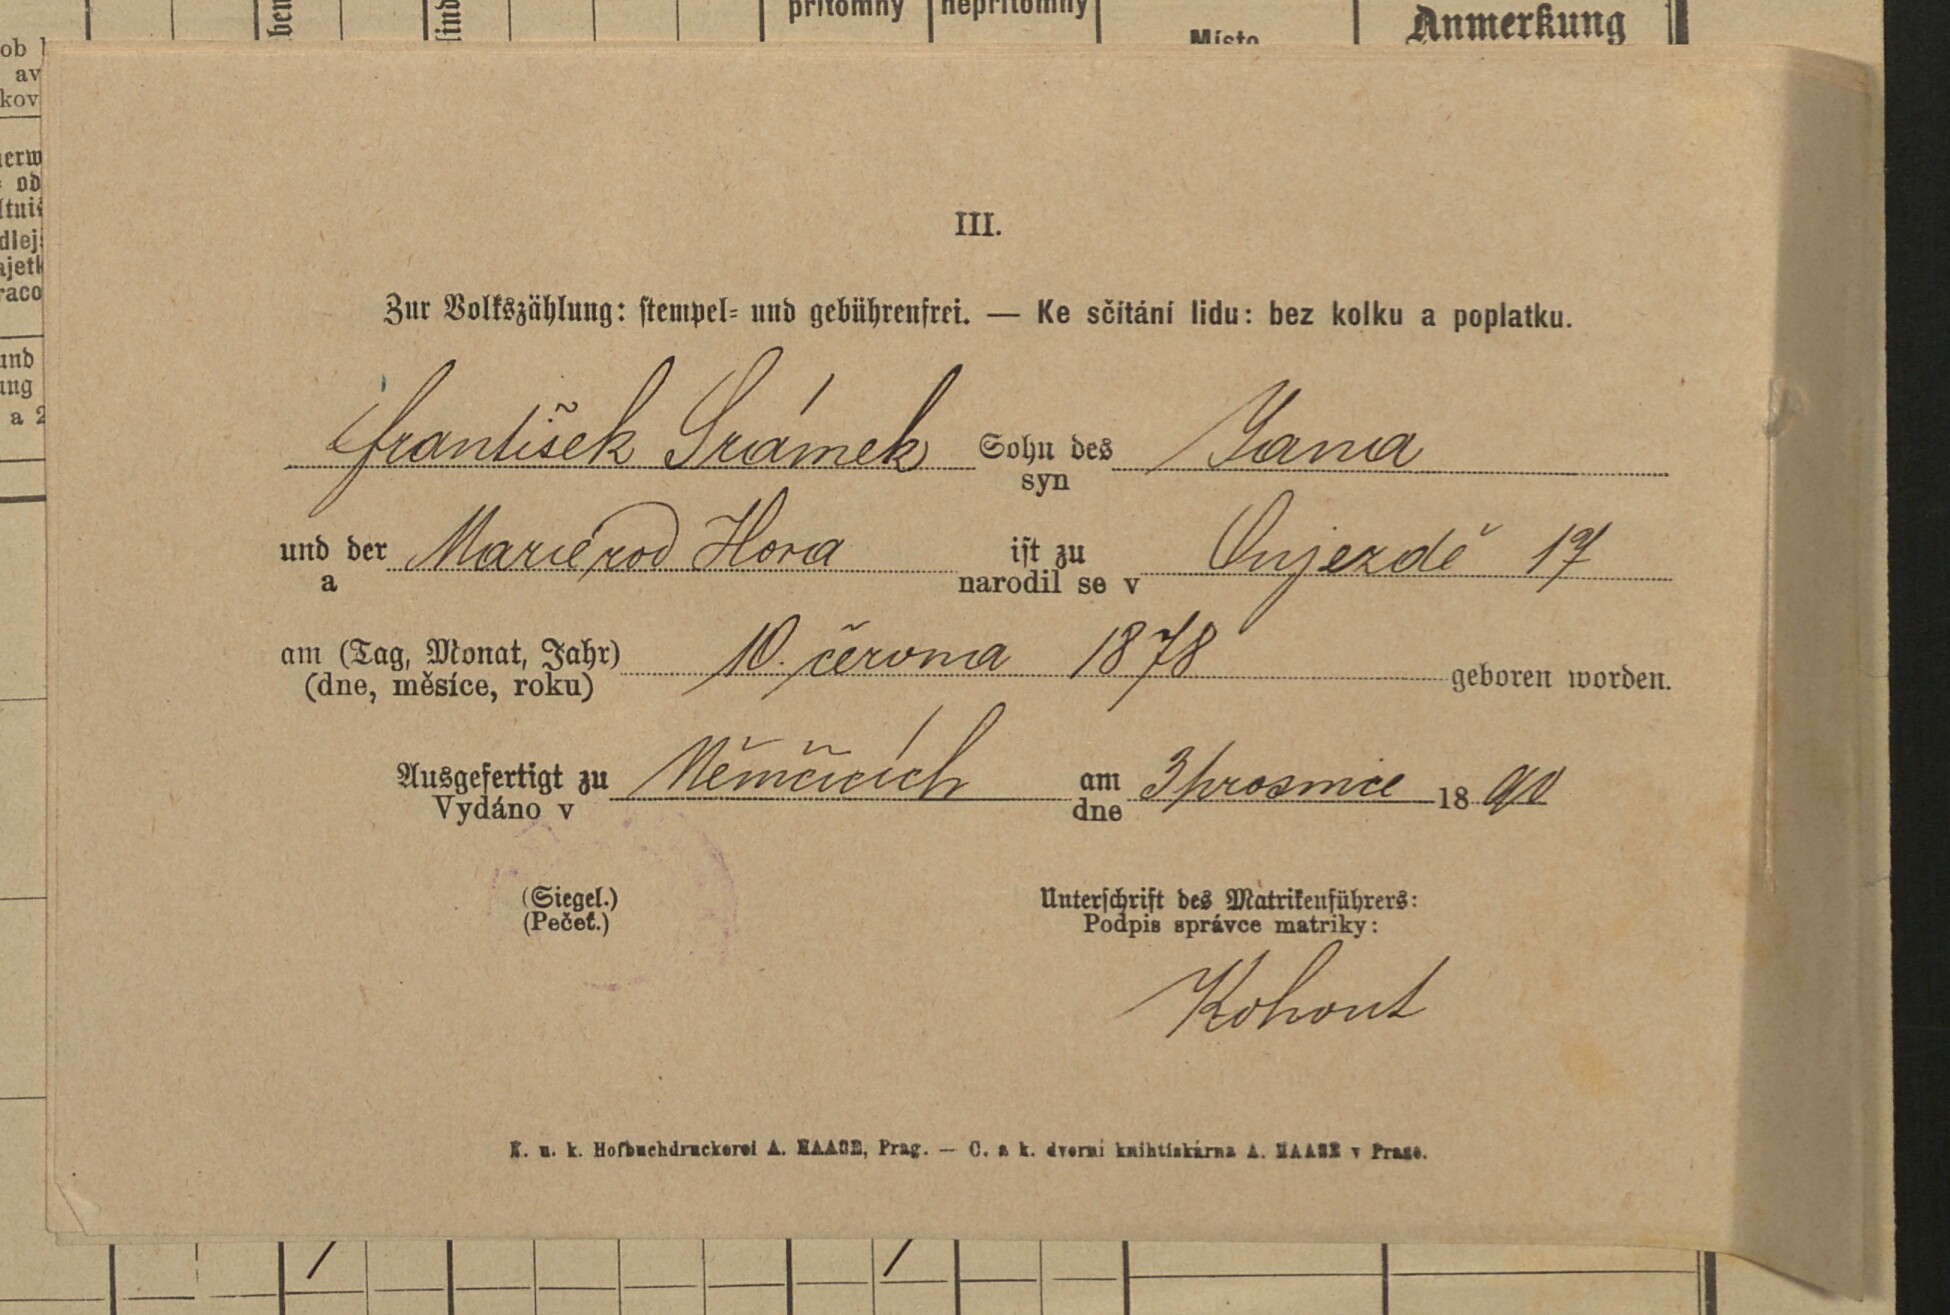 přítomný nepřítomný Místo Anmerkung
III.
Zur Volkszählung: stempel- und gebührenfrei. — Ke sčítání lidu: bez kolku a poplatku.
František Srámek Sohn des Jana
syn
und der Marie rod Hora ist zu Oujezdě 17
a narodil se v
am (Tag, Monat, Jahr) 10. června 1878 geboren worden.
(dne, měsíce, roku)
Ausgefertigt zu Němčicích am 3 prosince 1890
Vydáno v dne
(Siegel.) Unterschrift des Matrikenführers:
(Pečeť.) Podpis správce matriky:
Kohout
K. u. k. Hofbuchdruckerei A. HAASE, Prag. — C. a k. dvorní knihtiskárna A. HAASE v Praze.